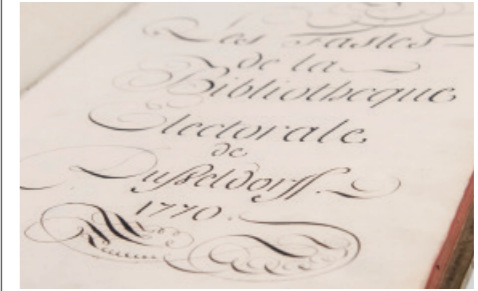 Les Fastes
de la
Bibliotheque
Electorale
de
Dusseldorff.
1770.